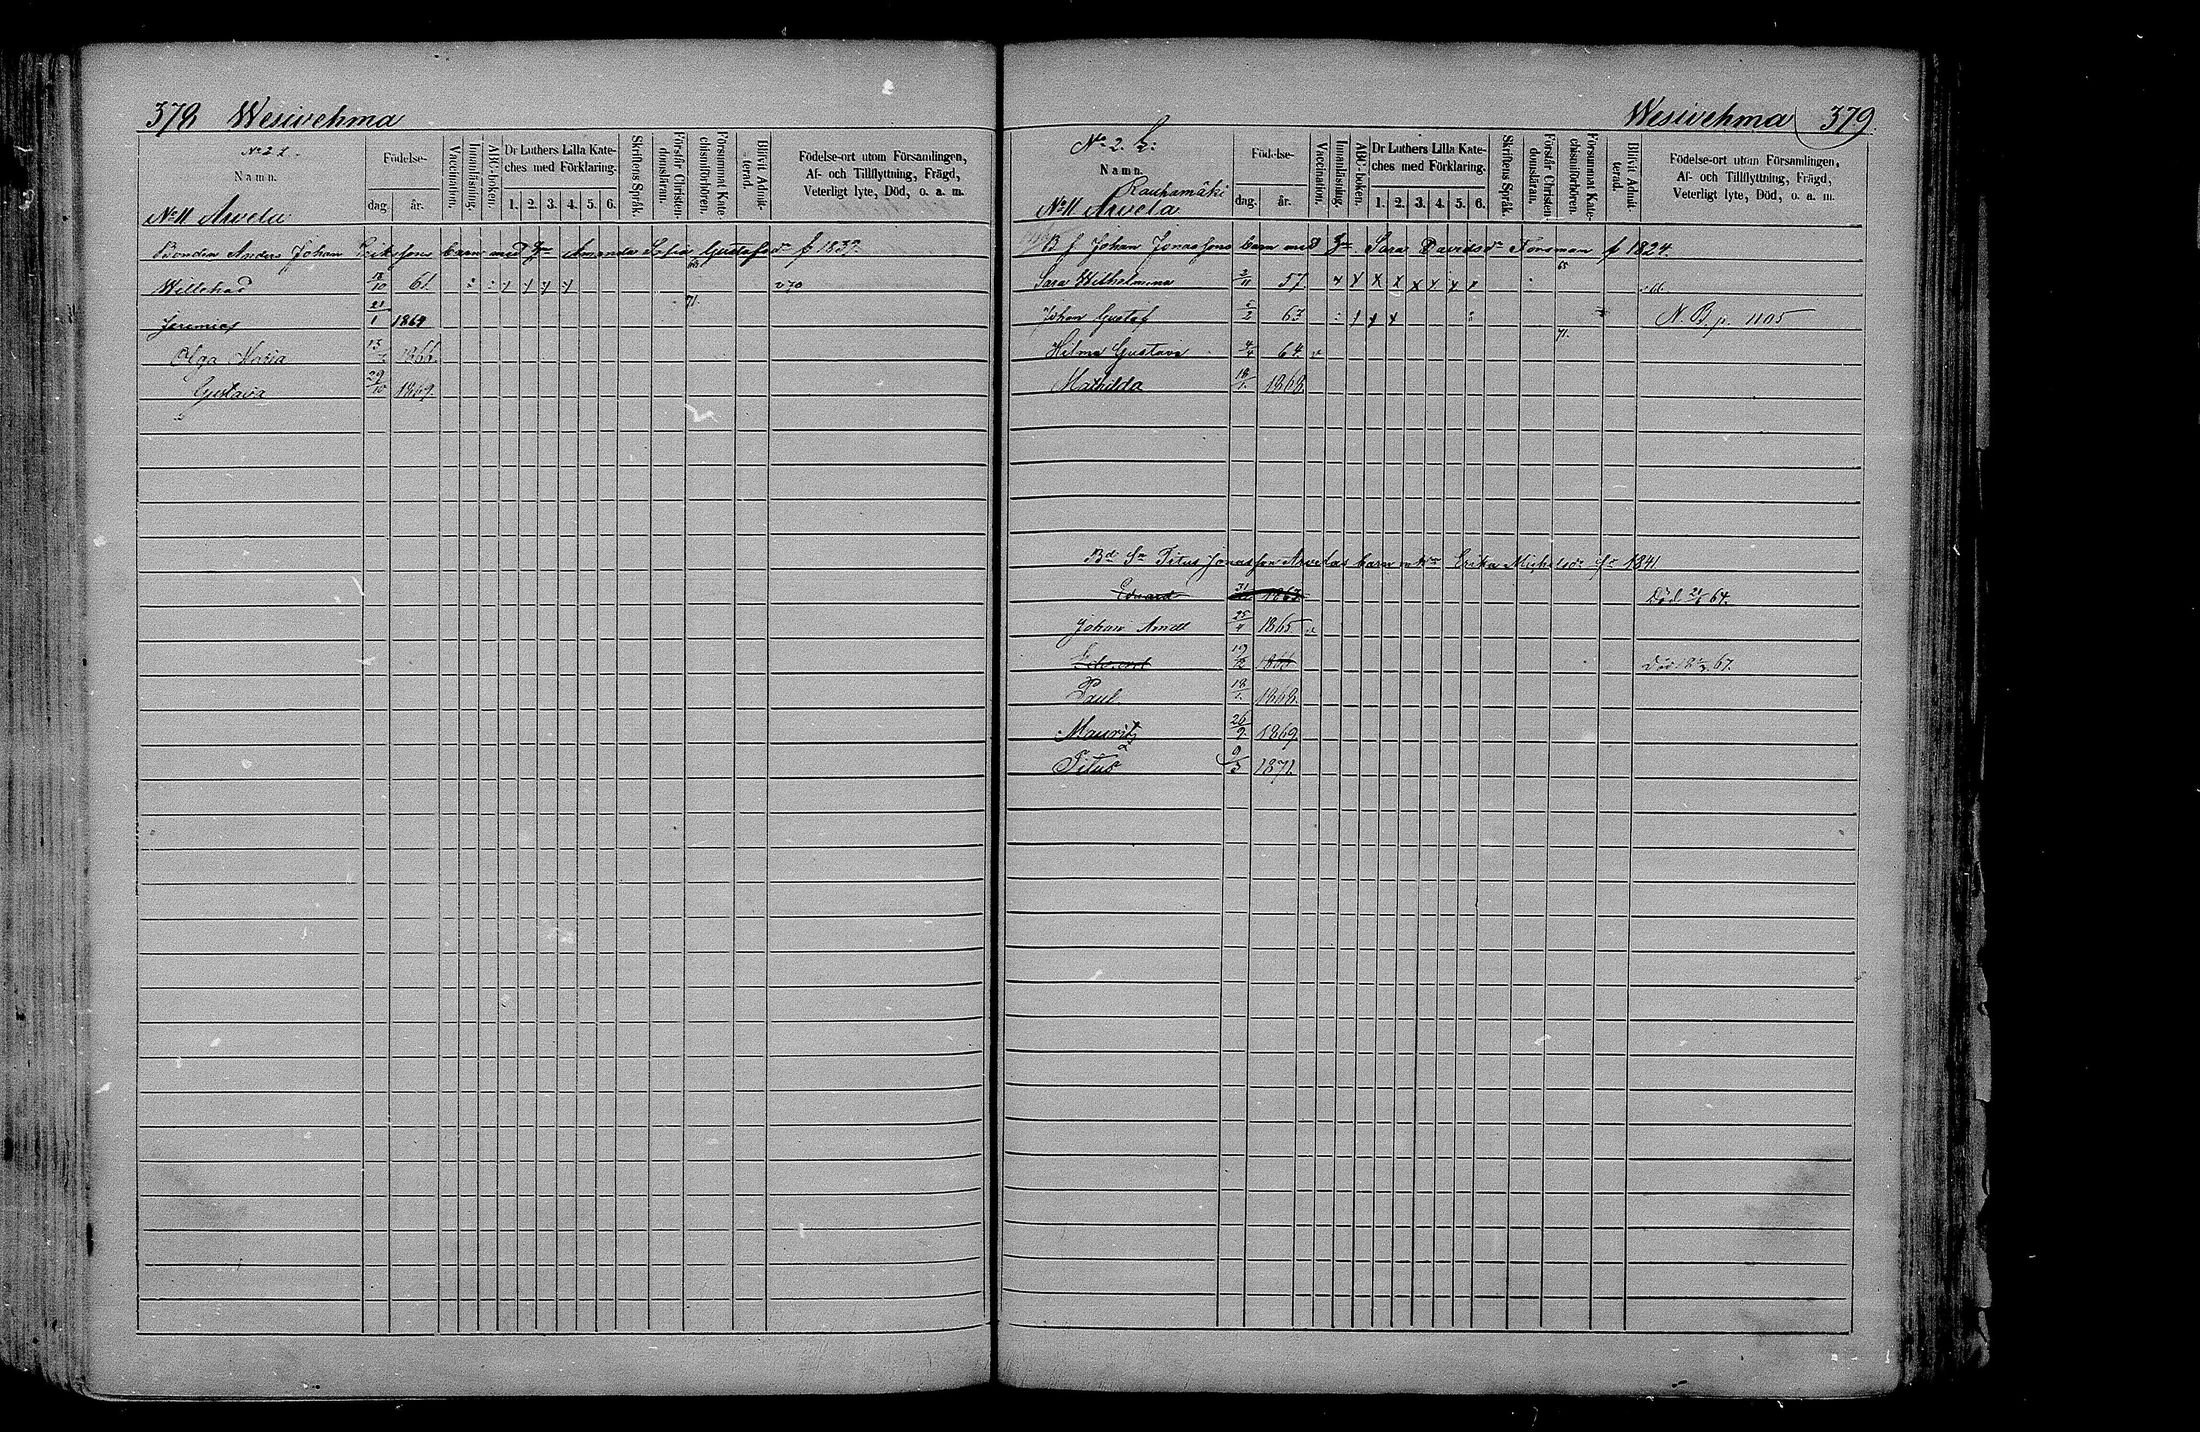 378 Wesivehma
Födelse-
Vaccination.
Innanläsning.
ABC-boken.
Dr Luthers Lilla Kate-
ches med Förklaring.
Skriftens Språk.
Förstår Christen-
domsläran.
Försummat Kate-
chismiförhören.
Blifvit Admit-
terad.
Födelse-ort utom Församlingen,
Af- och Tillflyttning, Frägd,
Veterligt lyte, Död, o. a. m.
Namn.
dag. år. 1. 2. 3. 4. 5. 6.
No 11 Arvela
Bonden Anders Johan Erikssons barn med Hu Amanda Sofia Gustafsdr f 1839.
66
Willehad 18/10 61.
71.
Jeremias 21/1 1864
Olga Maria 13 1866.
Gustava 29/10 1869.
Wesivehma 379.
No 2.
Födelse-
Vaccination.
Innanläsning.
ABC-boken.
Dr Luthers Lilla Kate-
ches med Förklaring.
Skriftens Språk.
Förstår Christen-
domsläran.
Försummat Kate-
chismiförhören.
Blifvit Admit-
terad.
Födelse-ort utom Församlingen,
Af- och Tillflyttning, Frägd,
Veterligt lyte, Död, o. a. m.
Namn.
Rauhamäki
dag. år. 1. 2. 3. 4. 5. 6.
No 11 Arvela
Johan Jonassons barn med Hu Sara Davidsdr Forsman f 1824.
65
Sara Wilhelmina 2/11 57 x x x x x x x
Johan Gustaf 5/2 63 N. B. p. 1105
71.
Hilma Gustava 4/4 64. v
Mathilda 18/1. 1868.
Bd Sn Titus Jonasson Arvelas barn m Hu Erika Michelsdr f 1841
Edvard 31 1863 Död 64.
Johan Arvid 25/4 1865. v
Edvard 19/12 1866 Död 18 67.
Paul. 18/1. 1868.
Mauritz 26/9 1869
Titus 9/3 1871.